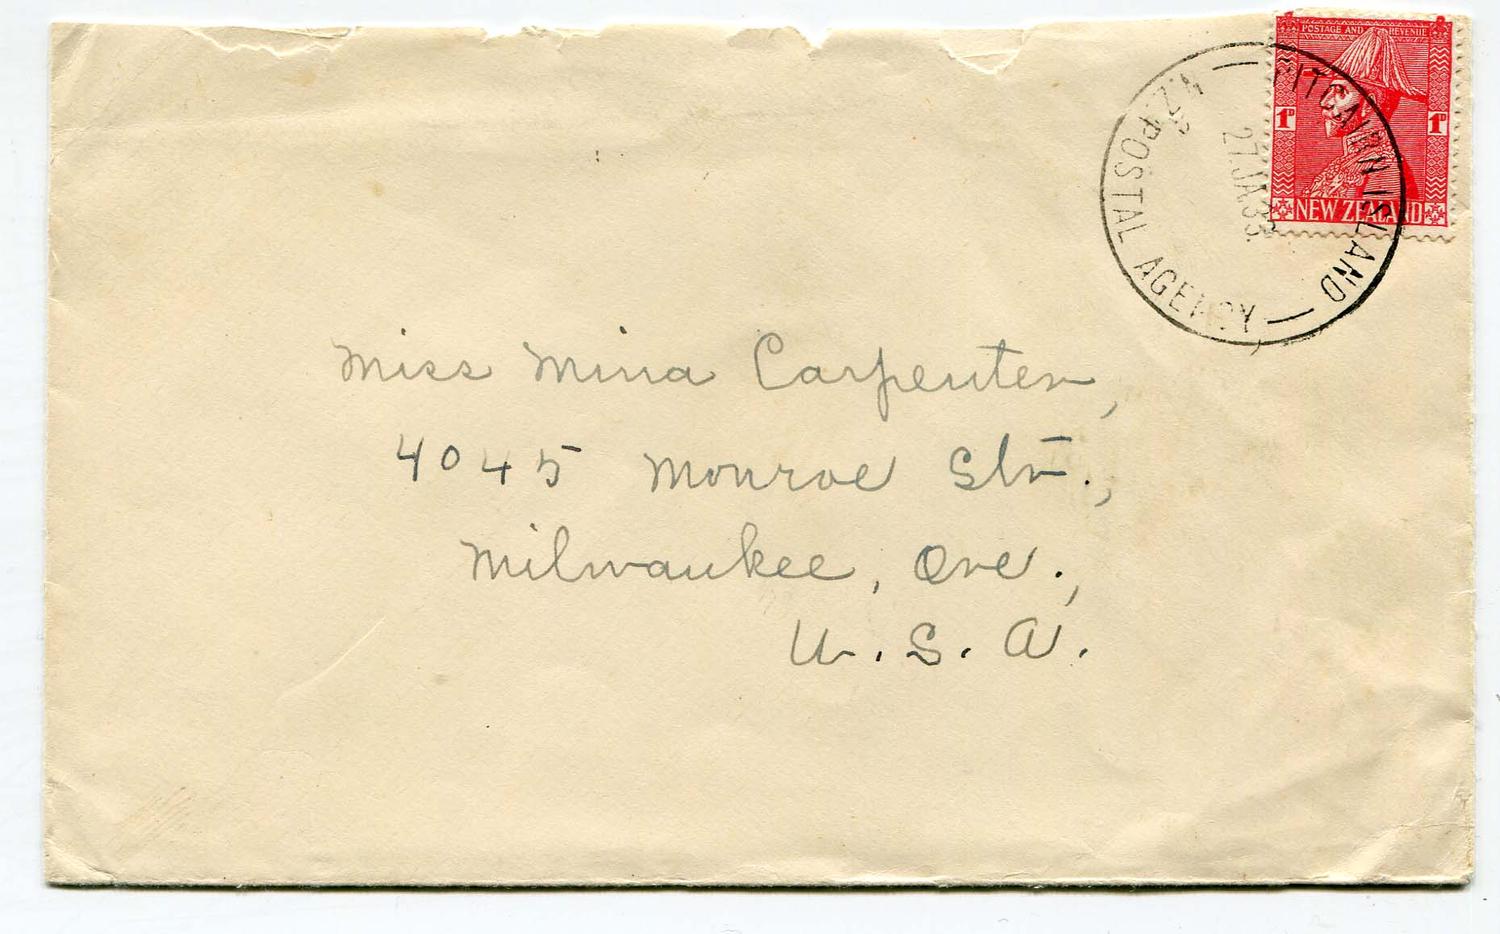 POSTAGE AND REVENUE
1D 1D
NEW ZEALAND
PITCAIRN ISLAND
N.Z. POSTAL AGENCY
27 JA 33
Miss Mina Carpenter,
4045 Monroe Str.,
Milwaukee, Ore.,
U. S. A.